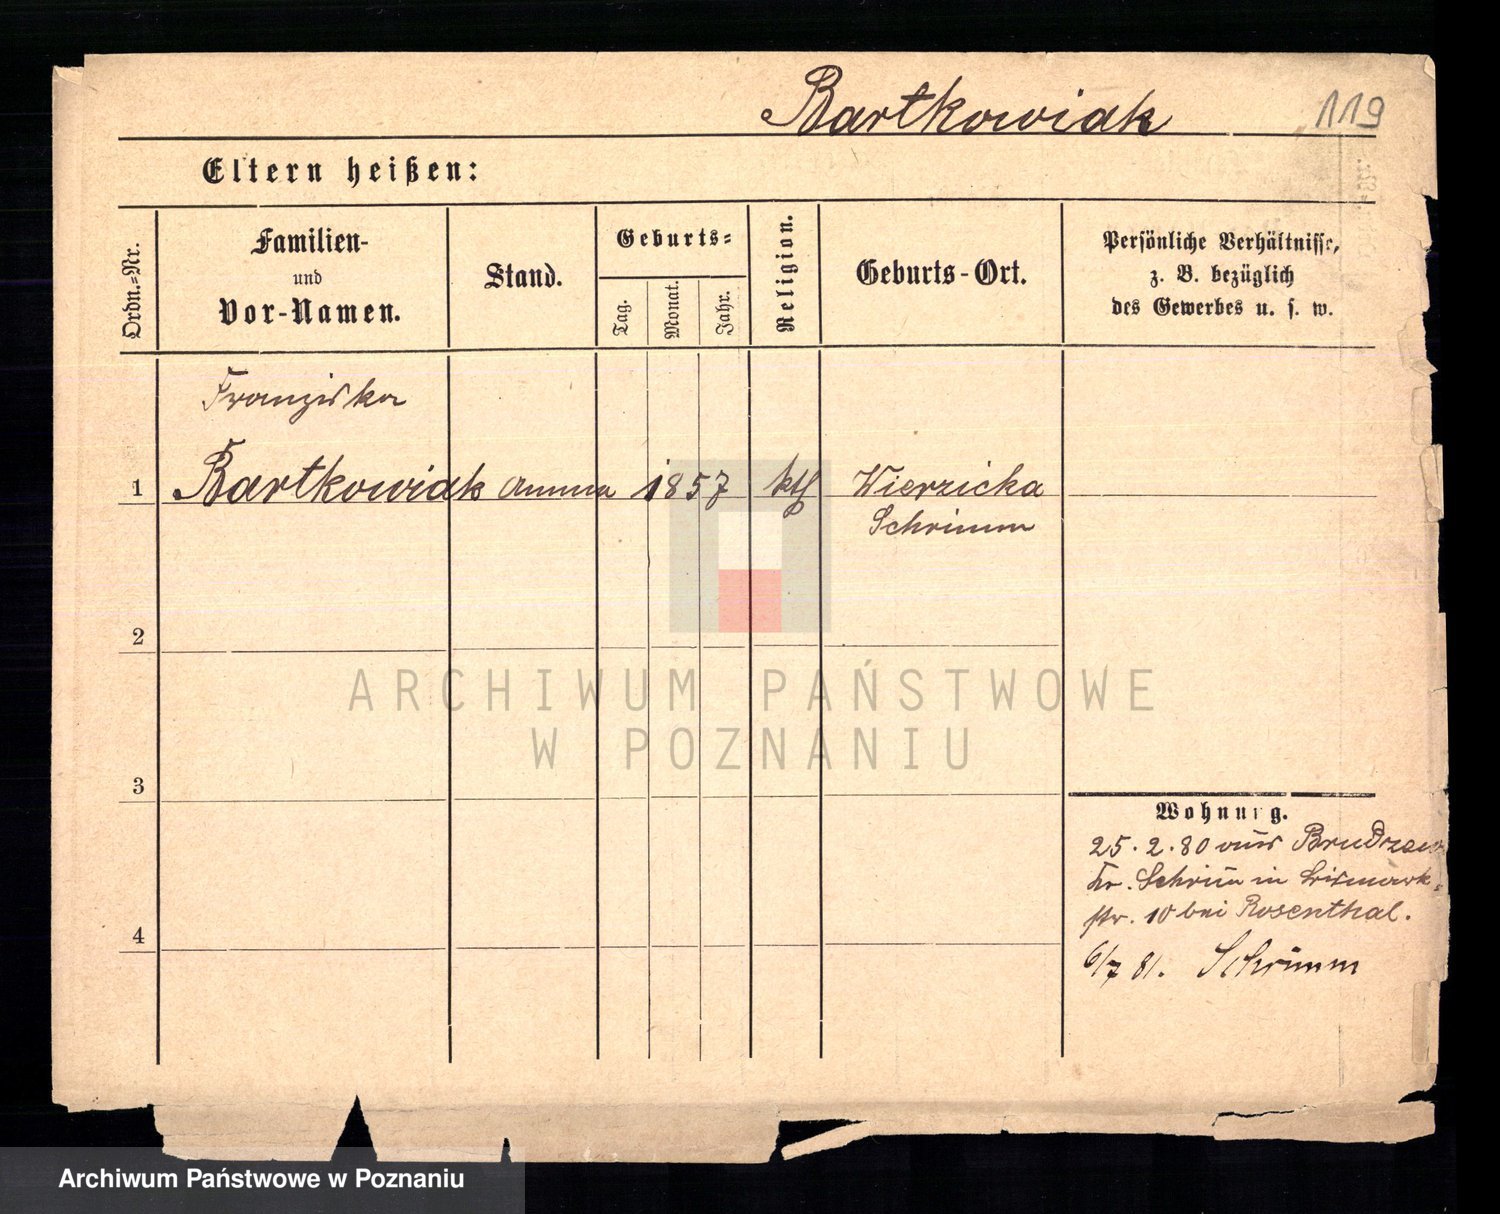 Bartkowiak
119
Eltern heißen:
Ordn.-Nr.
Familien-
und
Vor-Namen.
Stand.
Geburts-
Tag.
Monat.
Jahr.
Religion.
Geburts-Ort.
Persönliche Verhältnisse,
z. B. bezüglich
des Gewerbes u. s. w.
Franziska
1 Bartkowiak Amme 1857 kth Wierzicka
Schrimm
2
ARCHIWUM PAŃSTWOWE
W POZNANIU
3
Wohnung.
25. 2. 80 aus Brudzew
Kr. Schrim in Bismark-
str. 10 bei Rosenthal.
4
6/7 81. Schrimm
Archiwum Państwowe w Poznaniu